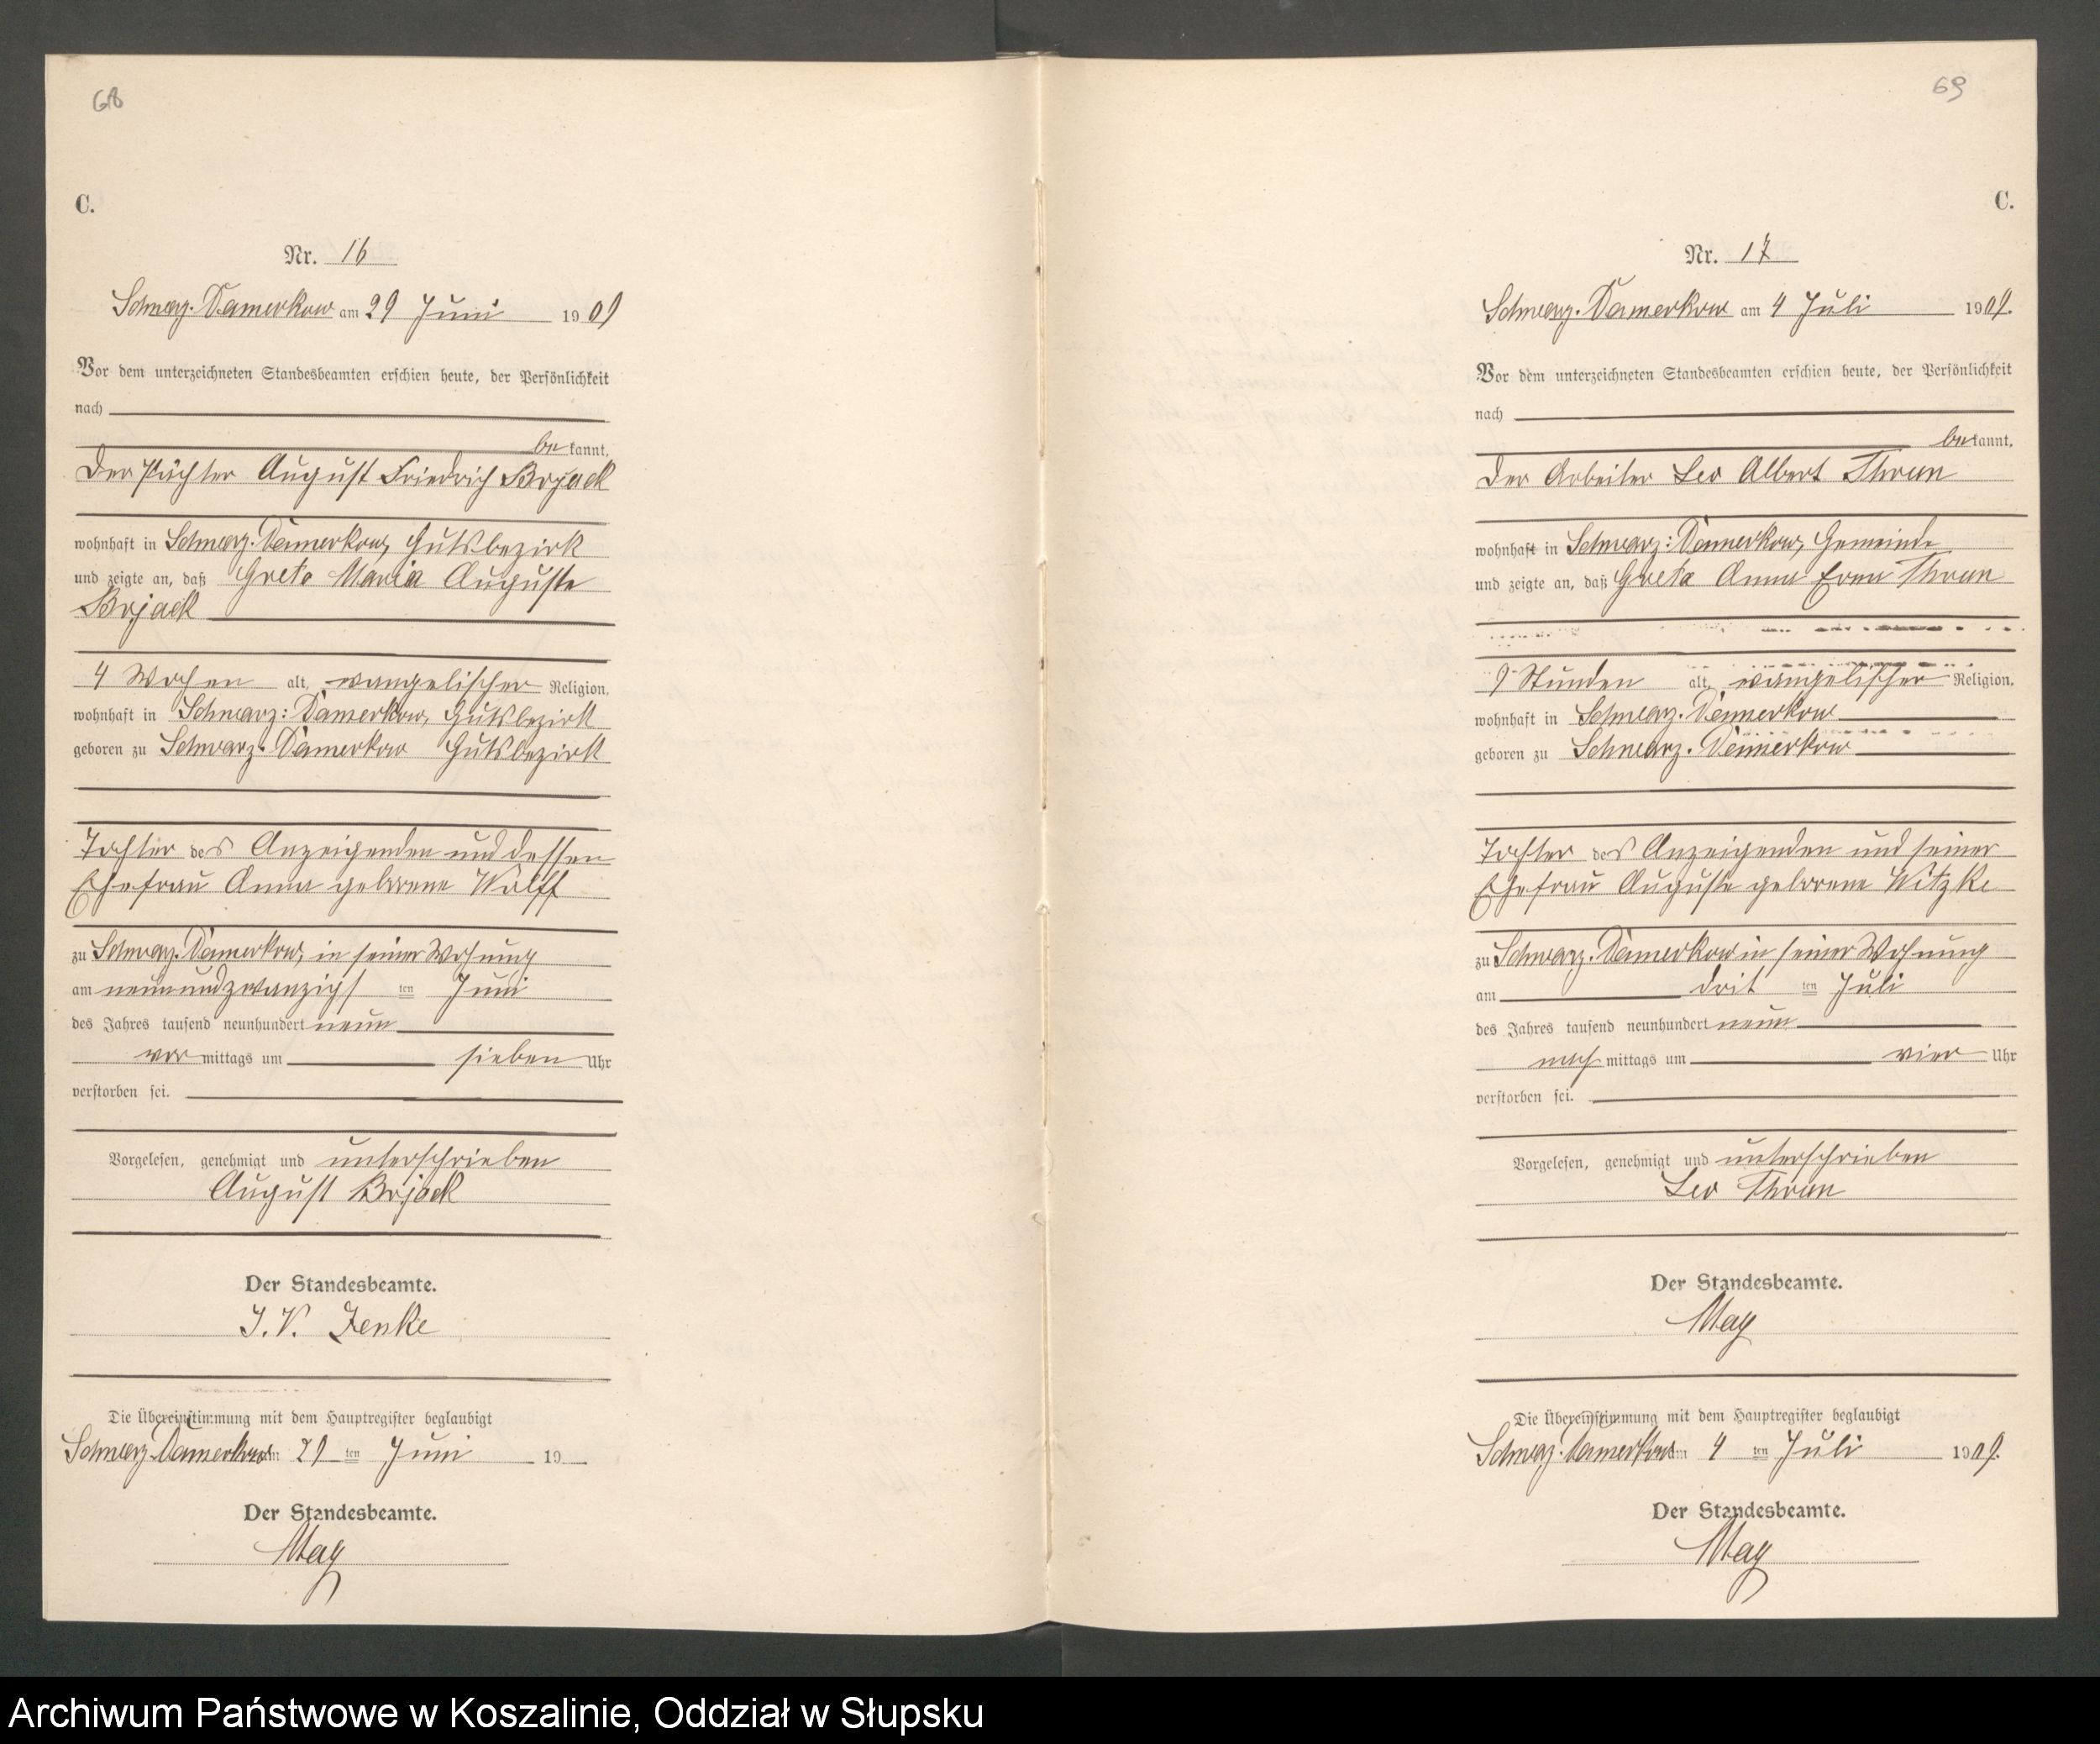 68
C.
Nr. 16
Schwarz-Damerkow am 29 Juni 1909
Vor dem unterzeichneten Standesbeamten erschien heute, der Persönlichkeit
nach
be kannt,
der Pächter August Friedrich Bojack
wohnhaft in Schwarz-Damerkow, Gutsbezirk
und zeigte an, daß Grete Maria Auguste
Bojack
4 Wochen alt, evangelischer Religion,
wohnhaft in Schwarz-Damerkow, Gutsbezirk
geboren zu Schwarz-Damerkow Gutsbezirk
Tochter des Anzeigenden und dessen
Ehefrau Anna geborene Wolff
zu Schwarz-Damerkow, in seiner Wohnung
am neunundzwanzigs ten Juni
des Jahres tausend neunhundert neun
vor mittags um sieben Uhr
verstorben sei.
Vorgelesen, genehmigt und unterschrieben
August Bojack
Der Standesbeamte.
J. V. Zenke
Die Übereinstimmung mit dem Hauptregister beglaubigt
Schwarz-Damerkow am 29 ten Juni 19
Der Standesbeamte.
May
69
C.
Nr. 17
Schwarz-Damerkow am 4 Juli 1909.
Vor dem unterzeichneten Standesbeamten erschien heute, der Persönlichkeit
nach
be kannt,
der Arbeiter Leo Albert Thrun
wohnhaft in Schwarz-Damerkow, Gemeinde
und zeigte an, daß Greta Anna Erna Thrun
9 Stunden alt, evangelischer Religion,
wohnhaft in Schwarz-Damerkow
geboren zu Schwarz-Damerkow
Tochter des Anzeigenden und seiner
Ehefrau Auguste geborene Witzke
zu Schwarz-Damerkow in seiner Wohnung
am drit ten Juli
des Jahres tausend neunhundert neun
nach mittags um vier Uhr
verstorben sei.
Vorgelesen, genehmigt und unterschrieben
Leo Thrun
Der Standesbeamte.
May
Die Übereinstimmung mit dem Hauptregister beglaubigt
Schwarz-Damerkow am 4 ten Juli 1909.
Der Standesbeamte.
May
Archiwum Państwowe w Koszalinie, Oddział w Słupsku